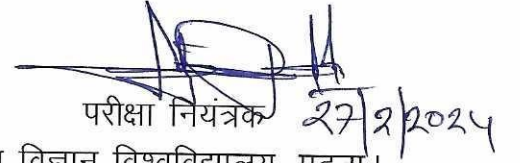 परीक्षा नियंत्रक 27/2/2024
विज्ञान विश्वविद्यालय,